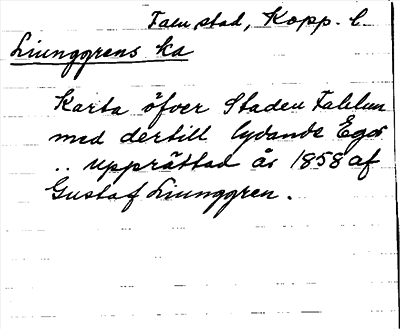 Falu stad, Kopp. l.
Ljunggrens ka
Karta öfver Staden Fahlun
med dertill lydande Egor
.. upprättad år 1858 af
Gustaf Ljunggren.